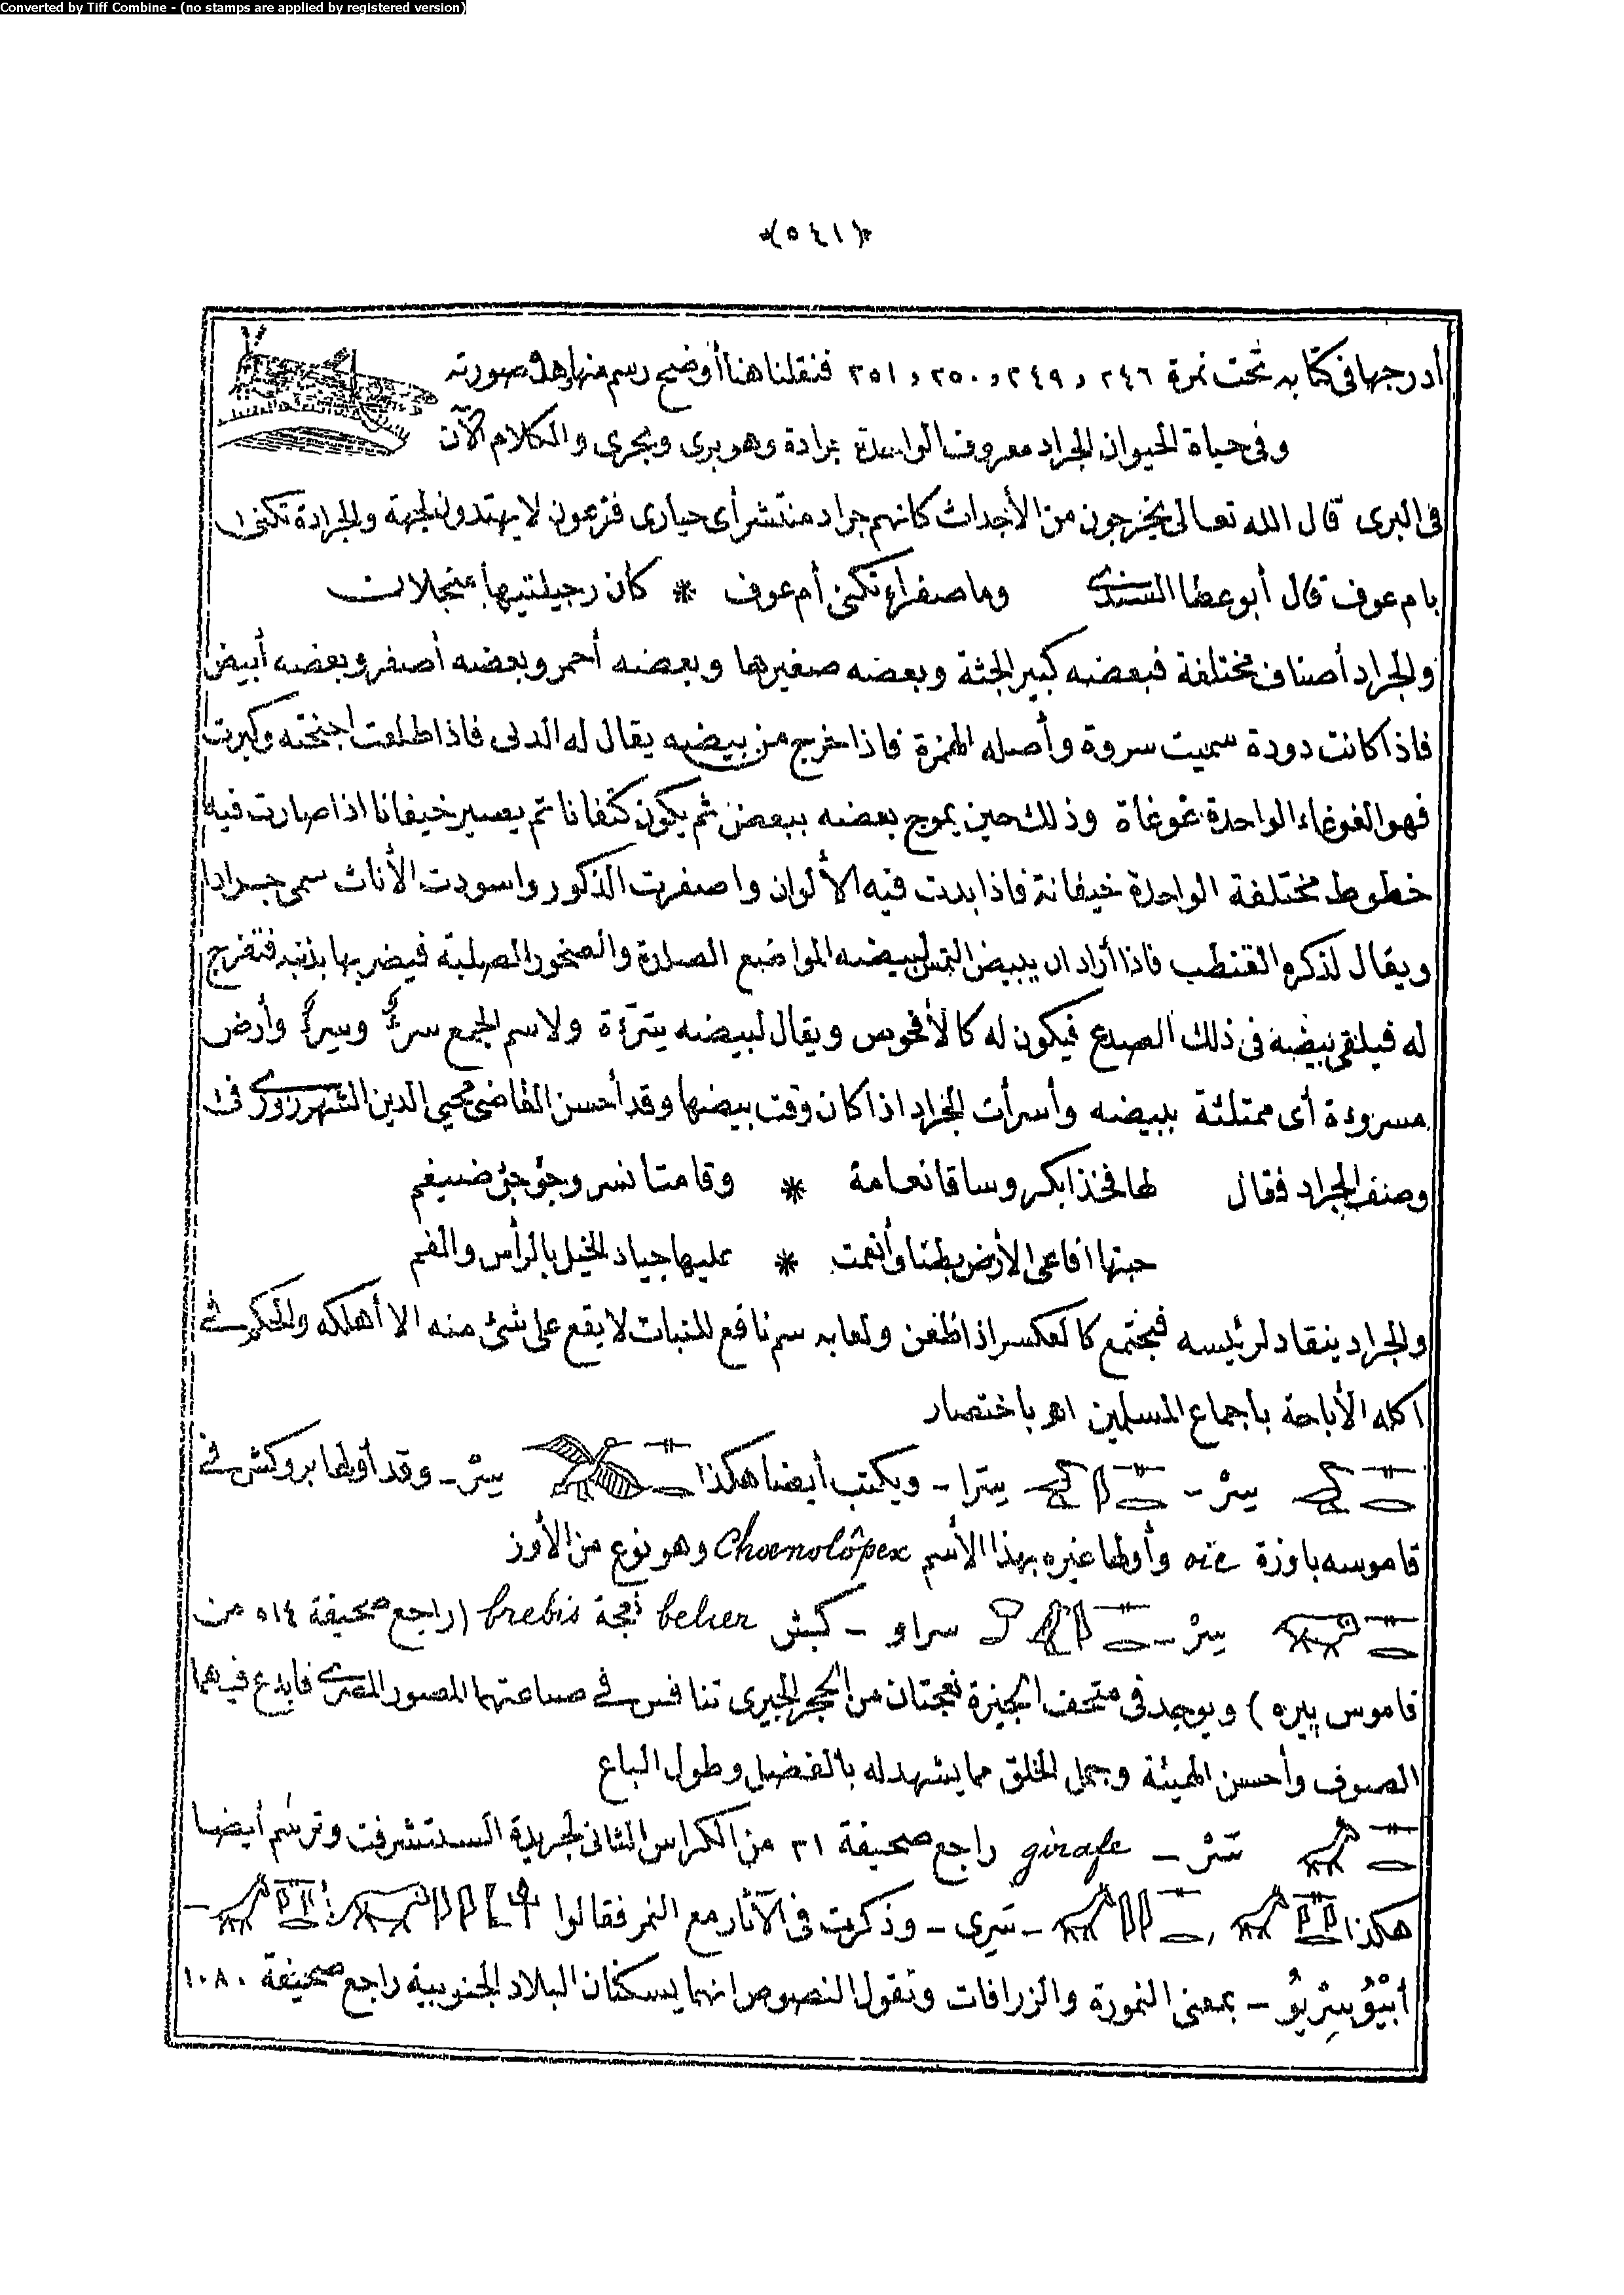 Converted by Tiff Combine - (no stamps are applied by registered version)
﴿٥٤١﴾
أدرجها فى كتابه تحت نمرة ٢٤٦ و ٢٤٩ و ٢٥٠ و ٢٥١ فنقلنا هنا أوضح رسم منها وهذه صورته
وفى حياة الحيوان الجراد معروف الواحدة جرادة وهو برى وبحرى والكلام الآن
فى البرى قال الله تعالى يخرجون من الأجداث كانهم جراد منتشر أى حيارى فزعون لا يهتدون لجهة والجرادة تكنى
بام عوف قال أبو عطا السندى وما صفراء تكنى أم عوف * كان رجيلتيها منجلان
والجراد أصناف مختلفة فبعضه كبير الجثة وبعضه صغيرها وبعضه أحمر وبعضه أصفر وبعضه أبيض
فاذا كانت دودة سميت سروة وأصله الهمزة فاذا خرج من بيضه يقال له الدبى فاذا طلعت اجنحته وكبرت
فهو الغوغاء الواحدة غوغاة وذلك حين يموج بعضه ببعض ثم يكون كتفانا ثم يصير خيفانا اذا صارت فيه
خطوط مختلفة الواحدة خيفانة فاذا بدت فيه الألوان واصفرت الذكور واسودت الأناث سمى جرادا
ويقال لذكره القنطب فاذا أراد ان يبيض التمس لبيضه المواضع الصلدة والصخور الصلبة فيضربها بذنبه فتفرج
له فيلقى بيضه فى ذلك الصدع فيكون له كالأفحوص ويقال لبيضه سرأة ولاسم الجمع سرءٌ وسرأ وأرض
مسروءة أى ممتلئة ببيضه وأسرأت الجراد اذا كان وقت بيضها وقد أحسن القاضى محيى الدين الشهرزورى فى
وصف الجراد فقال لها فخذا بكر وساقا نعامة * وقامتا نسر وجؤجؤ ضيغم
حبتها افاعى الأرض بطنا وأنعمت * عليها جياد الخيل بالرأس والفم
والجراد ينقاد لرئيسه فيجتمع كالعكسر اذا ظعن ولعابه سم ناقع للنبات لا يقع على شئ منه الا أهلكه والحكم فى
اكله الأباحة باجماع المسلمين اهـ باختصار
سِرْ - سِرا - ويكتب أيضا هكذا سِرْ - وقد أولها بروكش فى
قاموسه باوزة oie وأولها غيره بهذا الأسم Chœnolôpex وهو نوع من الأوز
سِرْ - سراو - كبش belier نعجة brebis (راجع صحيفة ٥١٤ من
قاموس پيره) ويوجد فى متحف الجيزة نعجتان من الحجر الجيرى تنافس فى صناعتهما المصور المصرى فابدع فيهما
الصوف وأحسن الهيئة وجمل الخلق مما يشهد له بالفضل وطول الباع
سَرْ - girafe راجع صحيفة ٣١ من الكراس الثانى لجريدة السنتشرفت وترسم أيضا
هكذا , - سَرِى - وذكرت فى الآثار مع النمر فقالوا -
أَبْيُو سِرْيُو - بمعنى النمورة والزرافات وتقول النصوص انهما يسكنان البلاد الجنوبية راجع صحيفة ١٠٨٠